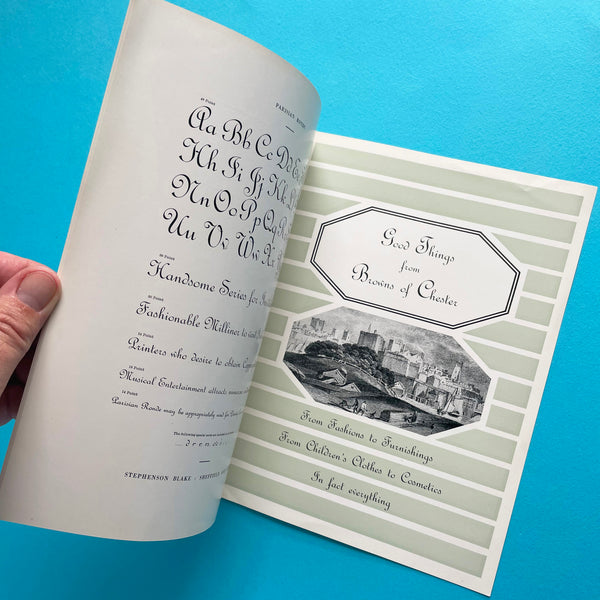 48 Point
PARISIAN RONDE
Aa Bb Cc Dd Ee
Hh Ii Jj Kk L
Nn Oo Pp Qq R
Uu Vv Ww Xx
Handsome Series for
Fashionable Milliner to visit
24 Point
Printers who desire to obtain
18 Point
Musical Entertainment attracts
14 Point
Parisian Ronde may be appropriately used for
The following special sorts are
d r e n d e r s
STEPHENSON BLAKE · SHEFFIELD
Good Things
from
Browns of Chester
From Fashions to Furnishings
From Children's Clothes to Cosmetics
In fact everything